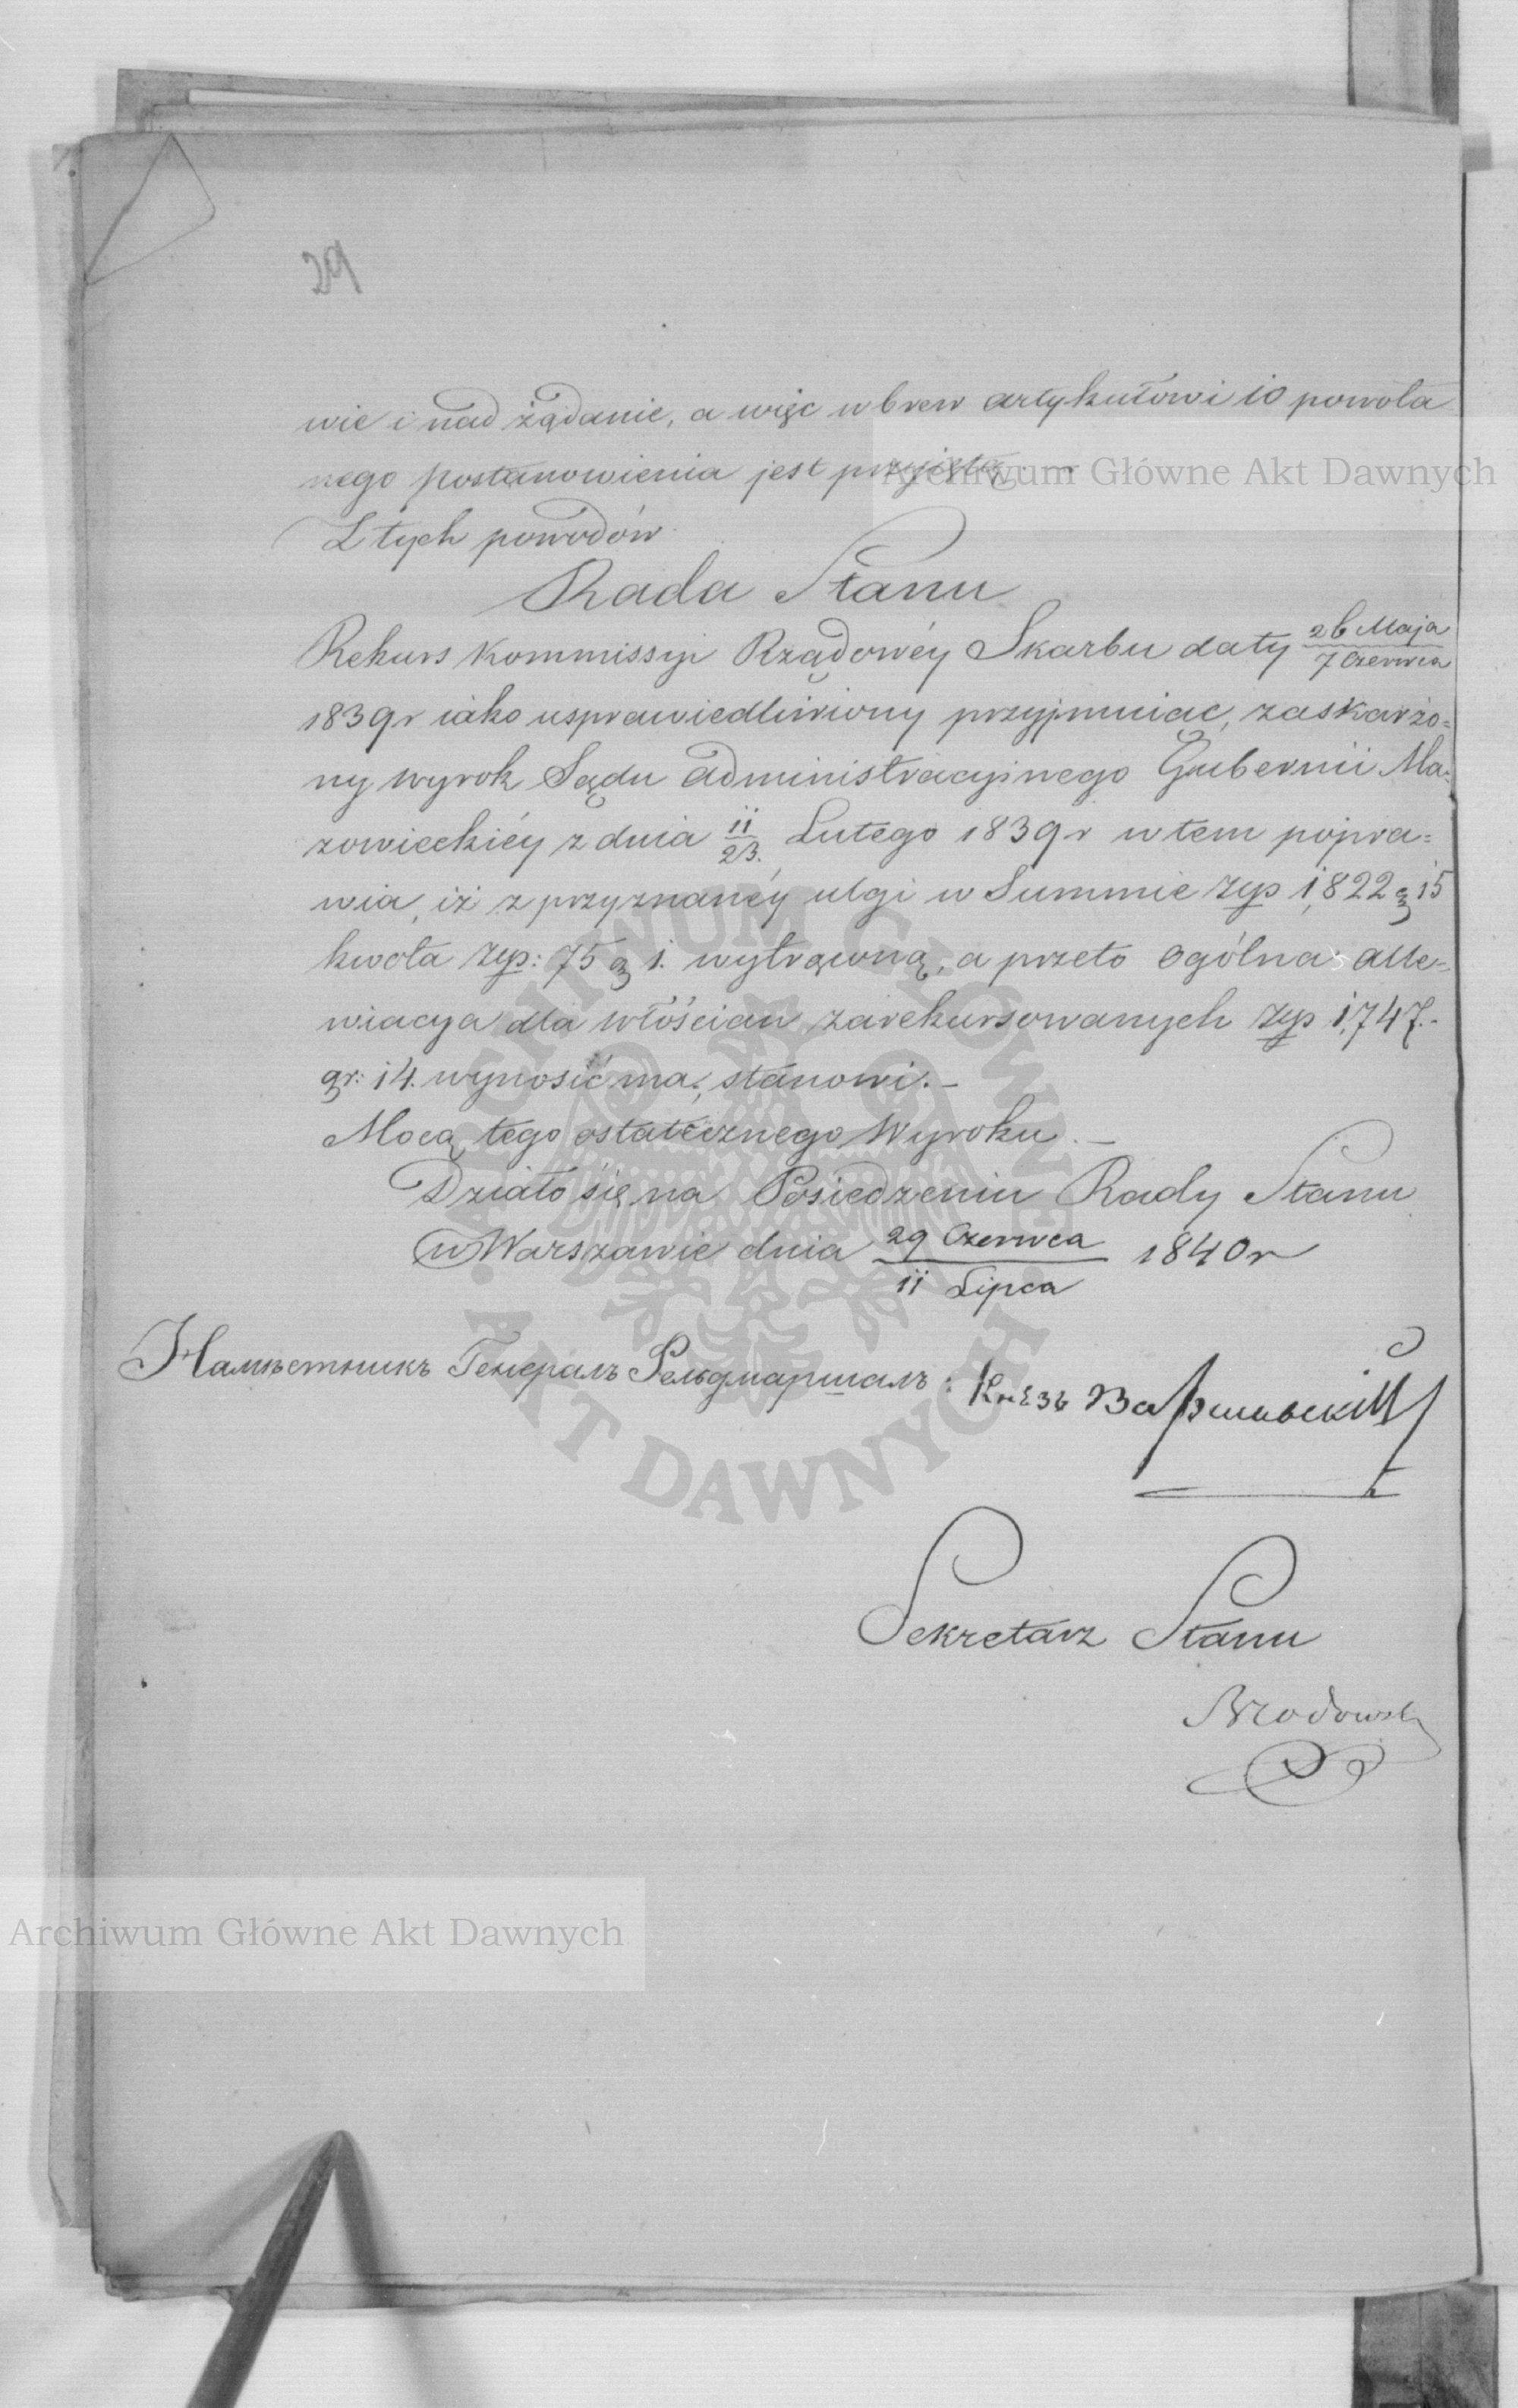 29
wie i nad żądanie, a więc wbrew artykułowi 10 powoła
nego postanowienia jest przyjętą.
Z tych powodów
Rada Stanu
Rekurs Kommissyi Rządowéy Skarbu daty 26 Maja / 7 Czerwca
1839r iako usprawiedliwiony przyjmuiąc, zaskarżo=
ny wyrok Sądu Administracyinego Gubernii Ma=
zowieckiéy z dnia 11/23. Lutego 1839r w tem popra=
wia, iż z przyznanéy ulgi w Summie złp 1,822 g 15
kwota złp: 75 g 1. wytrąconą, a przeto ogólna alle=
wiacya dla włościan zarekursowanych złp 1,747.-
gr: 14. wynosić ma, stanowi.-
Mocą tego ostatecznego Wyroku.-
Działo się na Posiedzeniu Rady Stanu
w Warszawie dnia 29 Czerwca / 11 Lipca 1840r
Намѣстникъ Генералъ Фельдмаршалъ: Князь Варшавскій
Sekretarz Stanu
Brodowski
Archiwum Główne Akt Dawnych
Archiwum Główne Akt Dawnych
ARCHIWUM GŁÓWNE AKT DAWNYCH